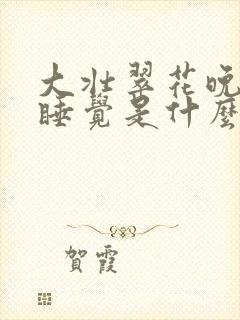 大壯翠花晚
睡覺是什麼
賀霞